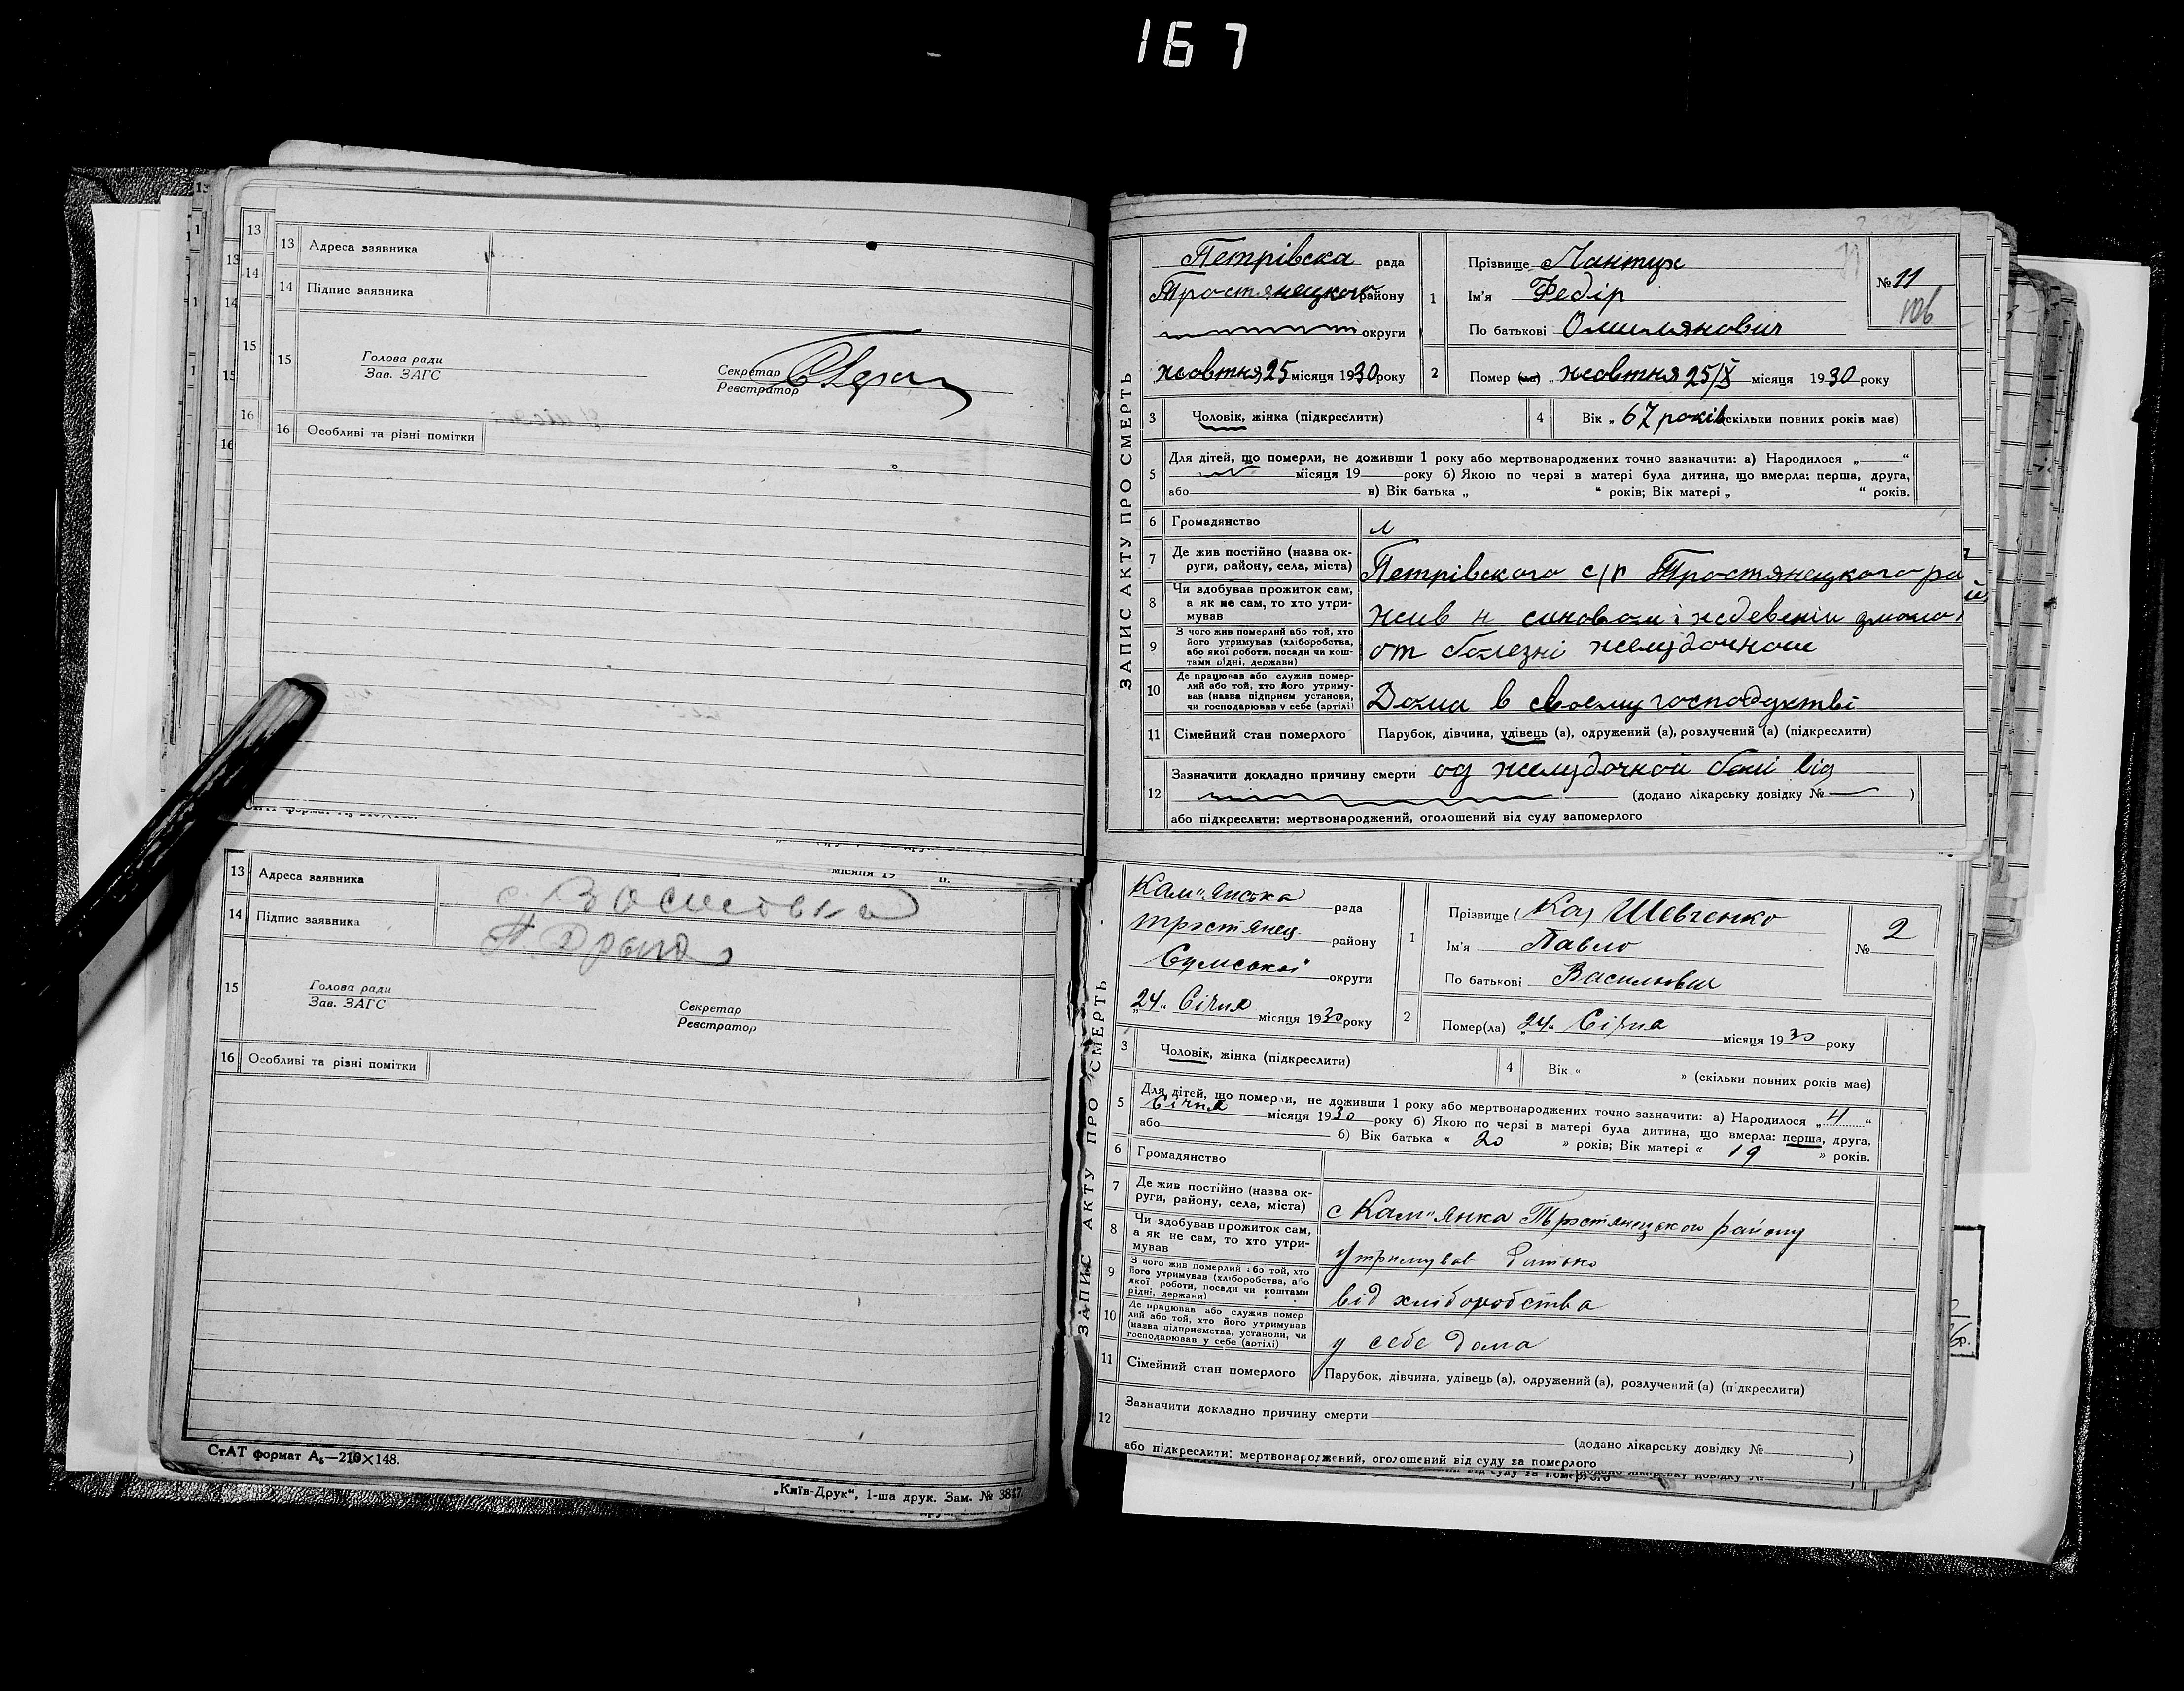 167
13 Адреса заявника
14 Підпис заявника
15 Голова ради
Зав. ЗАГС
Секретар
Реєстратор
16 Особливі та різні помітки
13 Адреса заявника
14 Підпис заявника
15 Голова ради
Зав. ЗАГС
Секретар
Реєстратор
16 Особливі та різні помітки
СтАТ формат А₅—210×148.
„Київ-Друк“, 1-ша друк. Зам. № 3847.
ЗАПИС АКТУ ПРО СМЕРТЬ
Петрівска рада
Тростянецкого району
округи
жовтня 25 місяця 1930 року
1 Прізвище Лантух
Ім'я Федір
По батькові Омилянович
№ 11
106
2 Помер (ла) „ жовтня 25/X місяця 1930 року
3 Чоловік, жінка (підкреслити)
4 Вік „ 67 років (скільки повних років має)
5 Для дітей, що померли, не доживши 1 року або мертвонароджених точно зазначити: а) Народилося „ “
місяця 19 року б) Якою по черзі в матері була дитина, що вмерла: перша, друга,
або в) Вік батька „ “ років; Вік матері „ “ років.
6 Громадянство
7 Де жив постійно (назва ок-
руги, району, села, міста) Петрівского с/р Тростянецкого ра
8 Чи здобував прожиток сам,
а як не сам, то хто утри-
мував жив
9 З чого жив померлий або той, хто
його утримував (хліборобства,
або якої роботи, посади чи кош-
тами рідні, держави) от болезні
10 Де працював або служив помер-
лий або той, хто його утриму-
вав (назва підприєм установи,
чи господарював у себе (артілі) Дома в своему господуктві
11 Сімейний стан померлого Парубок, дівчина, удівець (а), одружений (а), розлучений (а) (підкреслити)
12 Зазначити докладно причину смерти од желудочной болі від
(додано лікарську довідку № )
або підкреслити: мертвонароджений, оголошений від суду запомерлого
ЗАПИС АКТУ ПРО СМЕРТЬ
Кам"янська рада
тростянец району
Сумської округи
„24“ Січня місяця 1930 року
1 Прізвище (Ка) Шевченко
Ім'я Павло
По батькові Васильович
№ 2
2 Помер(ла) „24“ Січня місяця 1930 року
3 Чоловік, жінка (підкреслити)
4 Вік “ » (скільки повних років має)
5 Для дітей, що померли, не доживши 1 року або мертвонароджених точно зазначити: а) Народилося „ 4 “
Січня місяця 1930 року б) Якою по черзі в матері була дитина, що вмерла: перша, друга,
або б) Вік батька « 20 » років; Вік матері « 19 » років.
6 Громадянство
7 Де жив постійно (назва ок-
руги, району, села, міста) с Кам"янка Тростянецького району
8 Чи здобував прожиток сам,
а як не сам, то хто утри-
мував утримував батько
9 З чого жив померлий або той, хто
його утримував (хліборобства, або
якої роботи, посади чи коштами
рідні, держави) від хліборобства
10 Де працював або служив помер
лий або той, хто його утримував
(назва підприємства, установи, чи
господарював у себе (артілі) у себе дома
11 Сімейний стан померлого Парубок, дівчина, удівець (а), одружений (а), розлучений (а) (підкреслити)
12 Зазначити докладно причину смерти
(додано лікарську довідку № )
або підкреслити: мертвонароджений, оголошений від суду за померлого